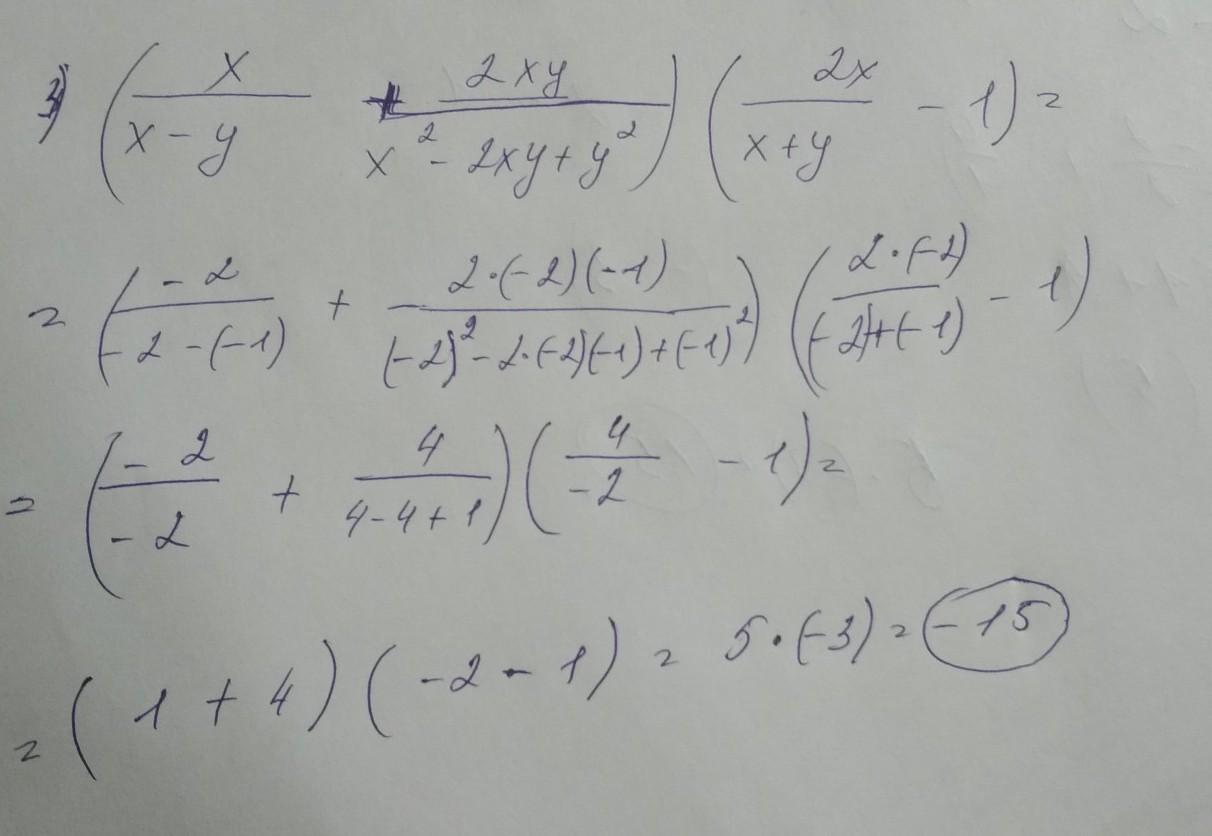 3) (x/(x - y) + 2xy/(x² - 2xy + y²)) (2x/(x + y) - 1) =
= (-2/(-2 - (-1)) + 2·(-2)(-1)/((-2)² - 2·(-2)(-1) + (-1)²)) (2·(-2)/((-2) + (-1)) - 1)
= (-2/-2 + 4/(4 - 4 + 1)) (4/-2 - 1) =
= (1 + 4) (-2 - 1) = 5·(-3) = -15